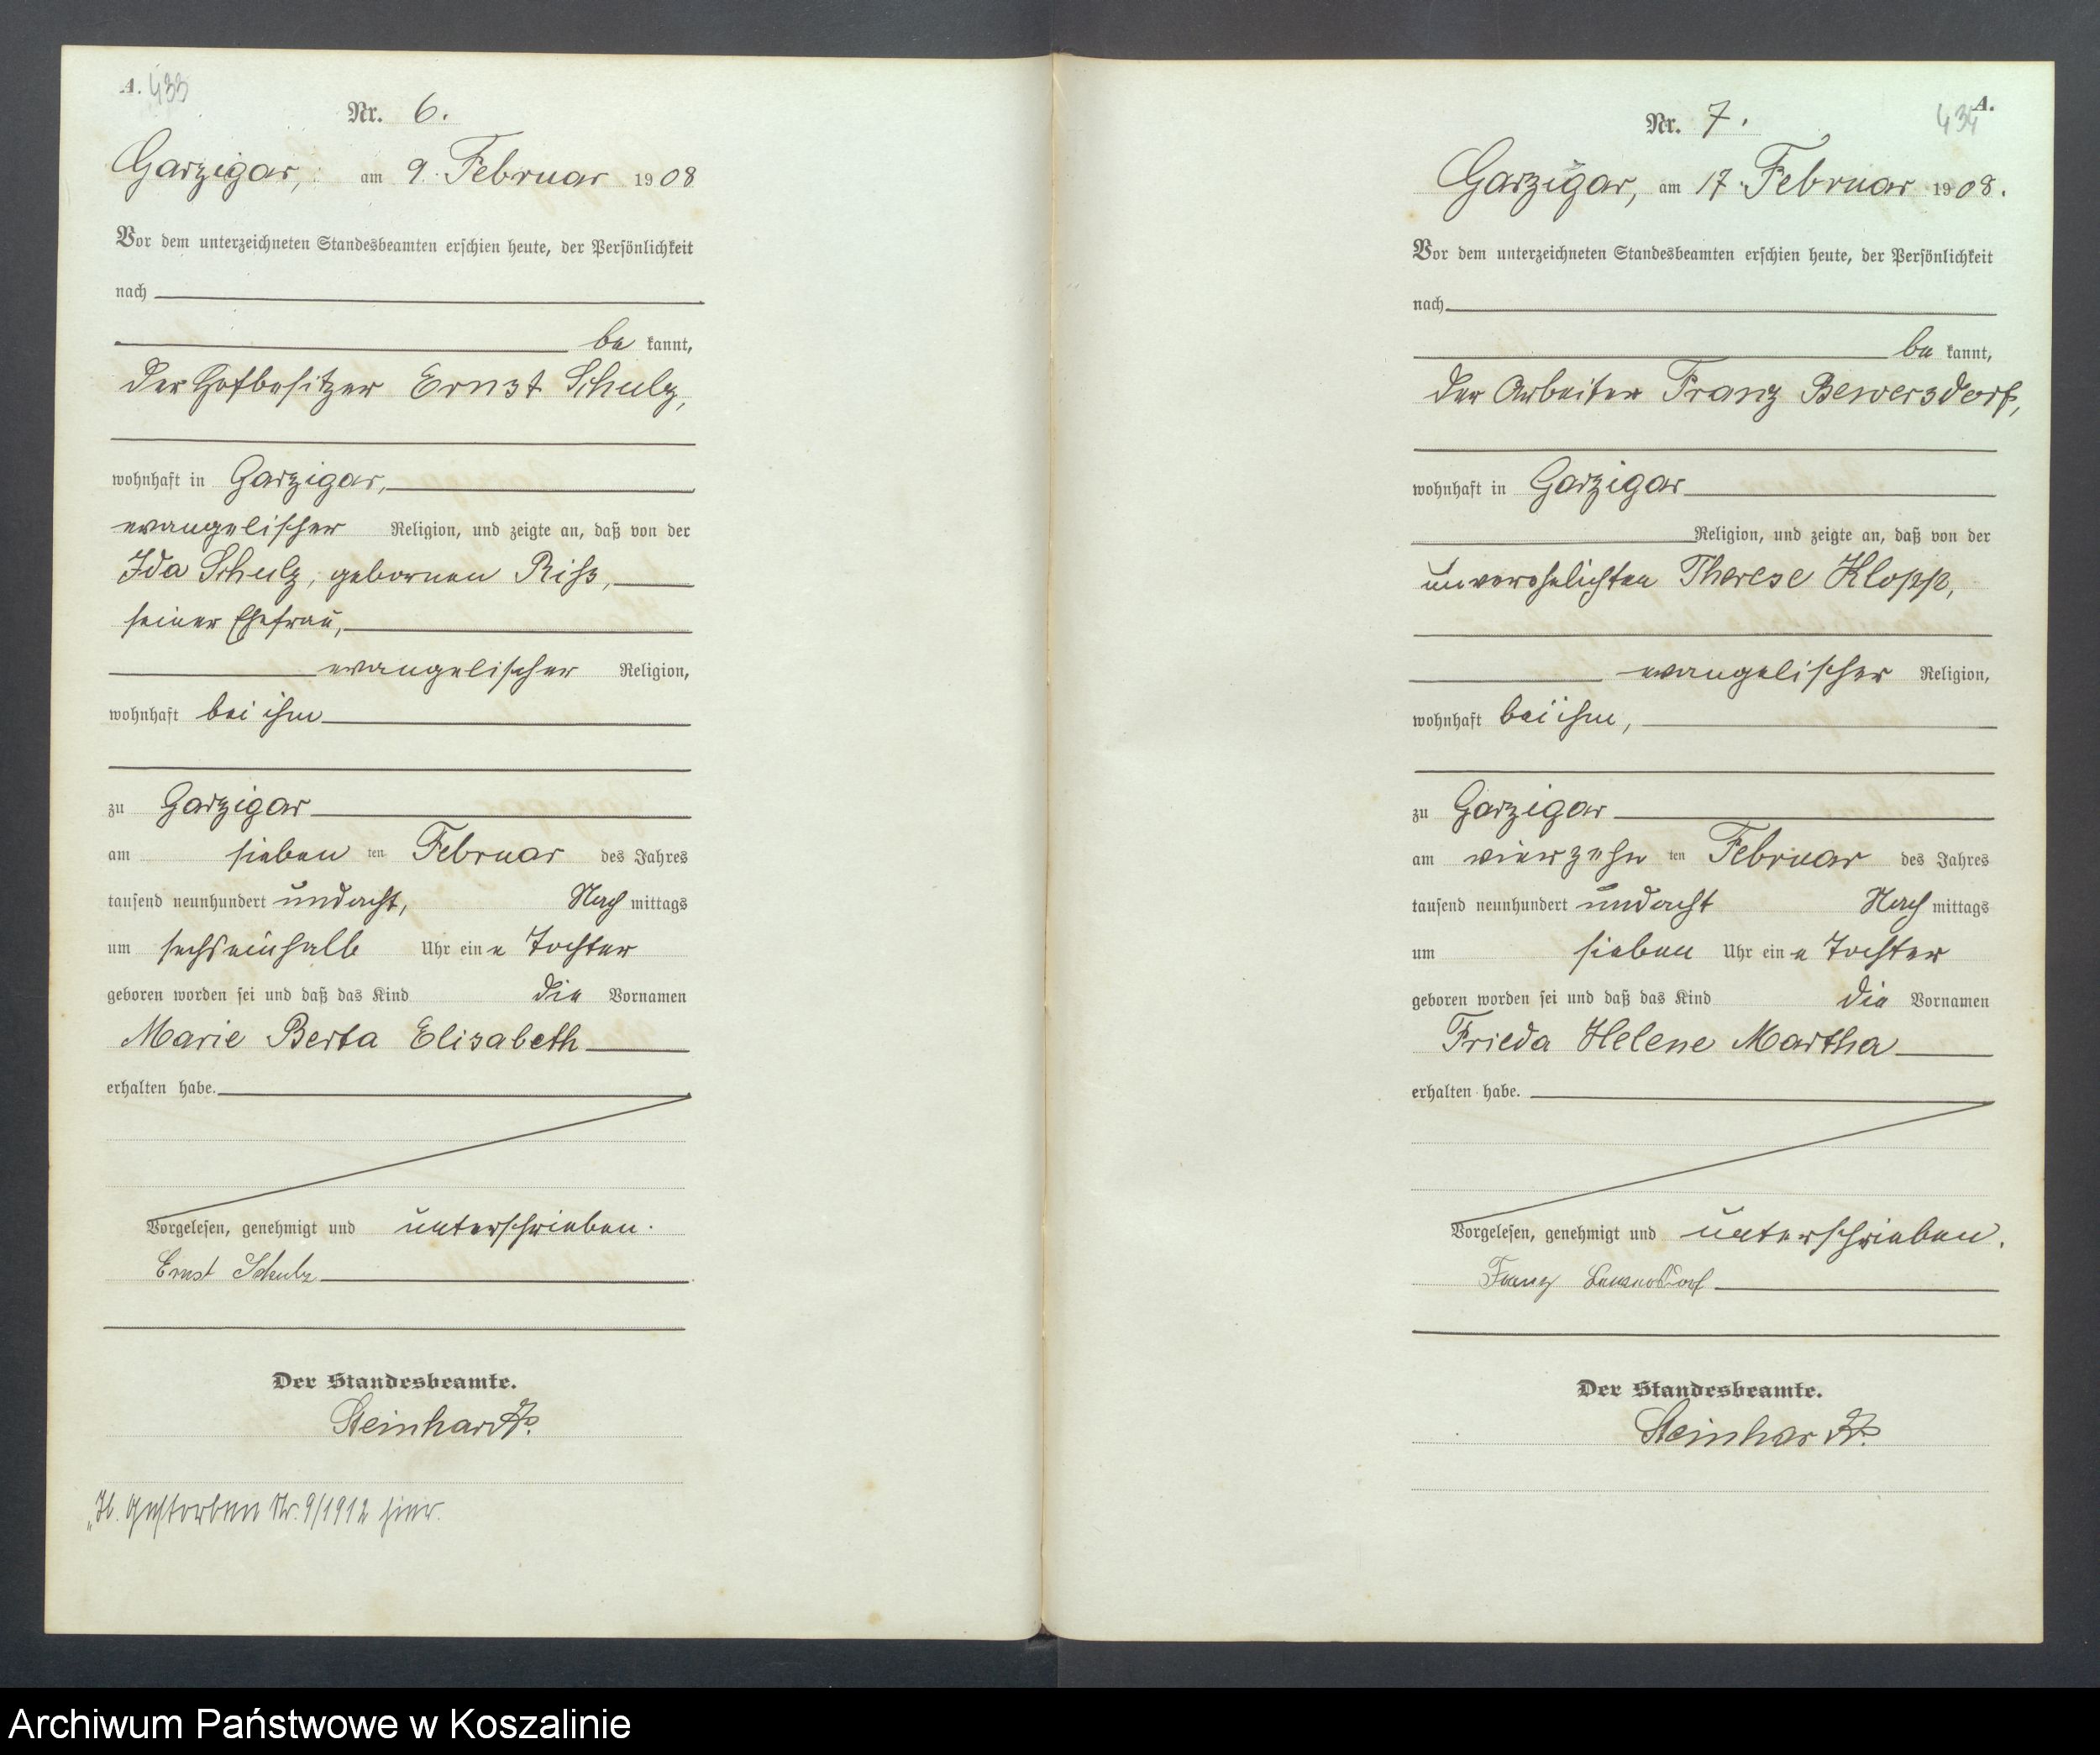 A. 433
Nr. 6.
Garzigar, am 9. Februar 1908
Vor dem unterzeichneten Standesbeamten erschien heute, der Persönlichkeit
nach
be kannt,
der Hofbesitzer Ernst Schulz,
wohnhaft in Garzigar,
evangelischer Religion, und zeigte an, daß von der
Ida Schulz, gebornen Riß,
seiner Ehefrau,
evangelischer Religion,
wohnhaft bei ihm
zu Garzigar
am sieben ten Februar des Jahres
tausend neunhundert und acht, Nach mittags
um sechseinhalb Uhr ein e Tochter
geboren worden sei und daß das Kind die Vornamen
Marie Berta Elisabeth
erhalten habe.
Vorgelesen, genehmigt und unterschrieben.
Ernst Schulz
Der Standesbeamte.
Steinhardt.
Gestorben Nr. 9/1912 hier.
434 A.
Nr. 7.
Garzigar, am 17. Februar 1908.
Vor dem unterzeichneten Standesbeamten erschien heute, der Persönlichkeit
nach
be kannt,
der Arbeiter Franz Bewersdorf,
wohnhaft in Garzigar
Religion, und zeigte an, daß von der
unverehelichten Therese Klopp,
evangelischer Religion,
wohnhaft bei ihm,
zu Garzigar
am vierzehn ten Februar des Jahres
tausend neunhundert und acht Nach mittags
um sieben Uhr ein e Tochter
geboren worden sei und daß das Kind die Vornamen
Frieda Helene Martha
erhalten habe.
Vorgelesen, genehmigt und unterschrieben.
Franz Bewersdorf
Der Standesbeamte.
Steinhardt.
Archiwum Państwowe w Koszalinie